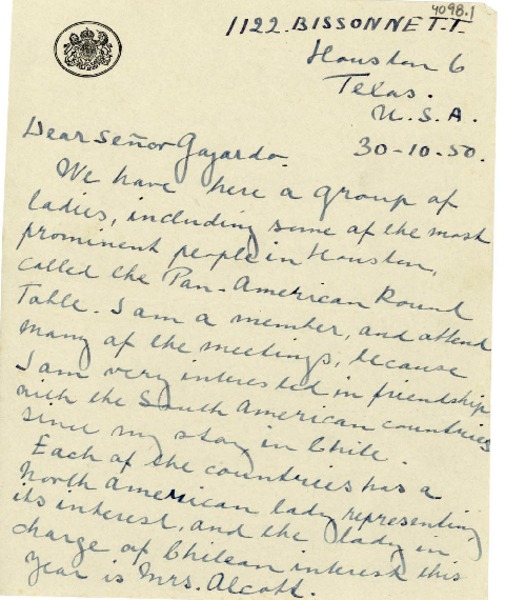 4098.1
1122. BISSONNETT.
Houston 6
Texas.
U.S.A.
30-10-50.
Dear Señor Gajardo.
We have here a group of
ladies, including some of the most
prominent people in Houston,
called the Pan-American Round
Table. I am a member, and attend
many of the meetings, because
I am very interested in friendship
with the South American countries
since my stay in Chile.
Each of the countries has a
North American lady representing
its interest, and the lady in
charge of Chilean interest this
year is Mrs. Alcott.